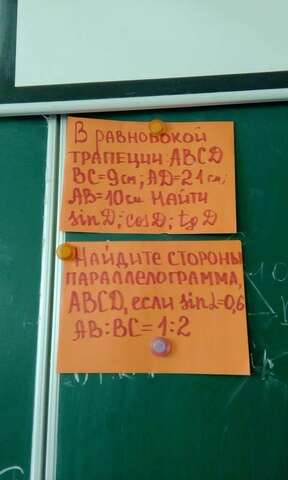 В РАВНОБОКОЙ
ТРАПЕЦИИ ABCD
BC=9см; AD=21см;
AB=10см НАЙТИ
sinD; cosD; tgD
НАЙДИТЕ СТОРОНЫ
ПАРАЛЛЕЛОГРАММА,
ABCD, если sinα=0,6
AB:BC=1:2